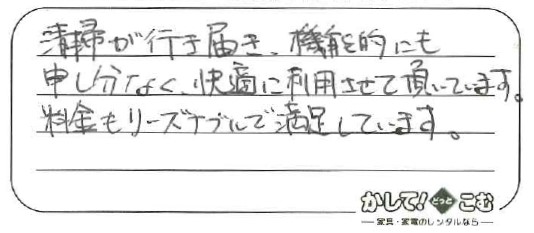 清掃が行き届き、機能的にも
申し分なく、快適に利用させて頂いています。
料金もリーズナブルで満足しています。
かして!どっとこむ
家具・家電のレンタルなら